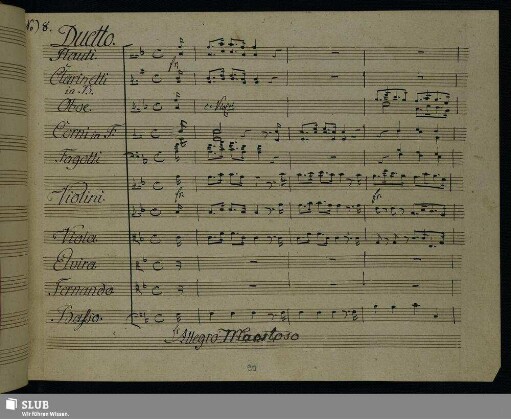 No) 8.
Duetto.
Flauti
Clarinetti
in B.
Oboe.
Corni in F.
Fagotti
Violini.
Viola
Elvira
Fernando
Basso.
Allegro Maestoso
SLUB
Wir führen Wissen.